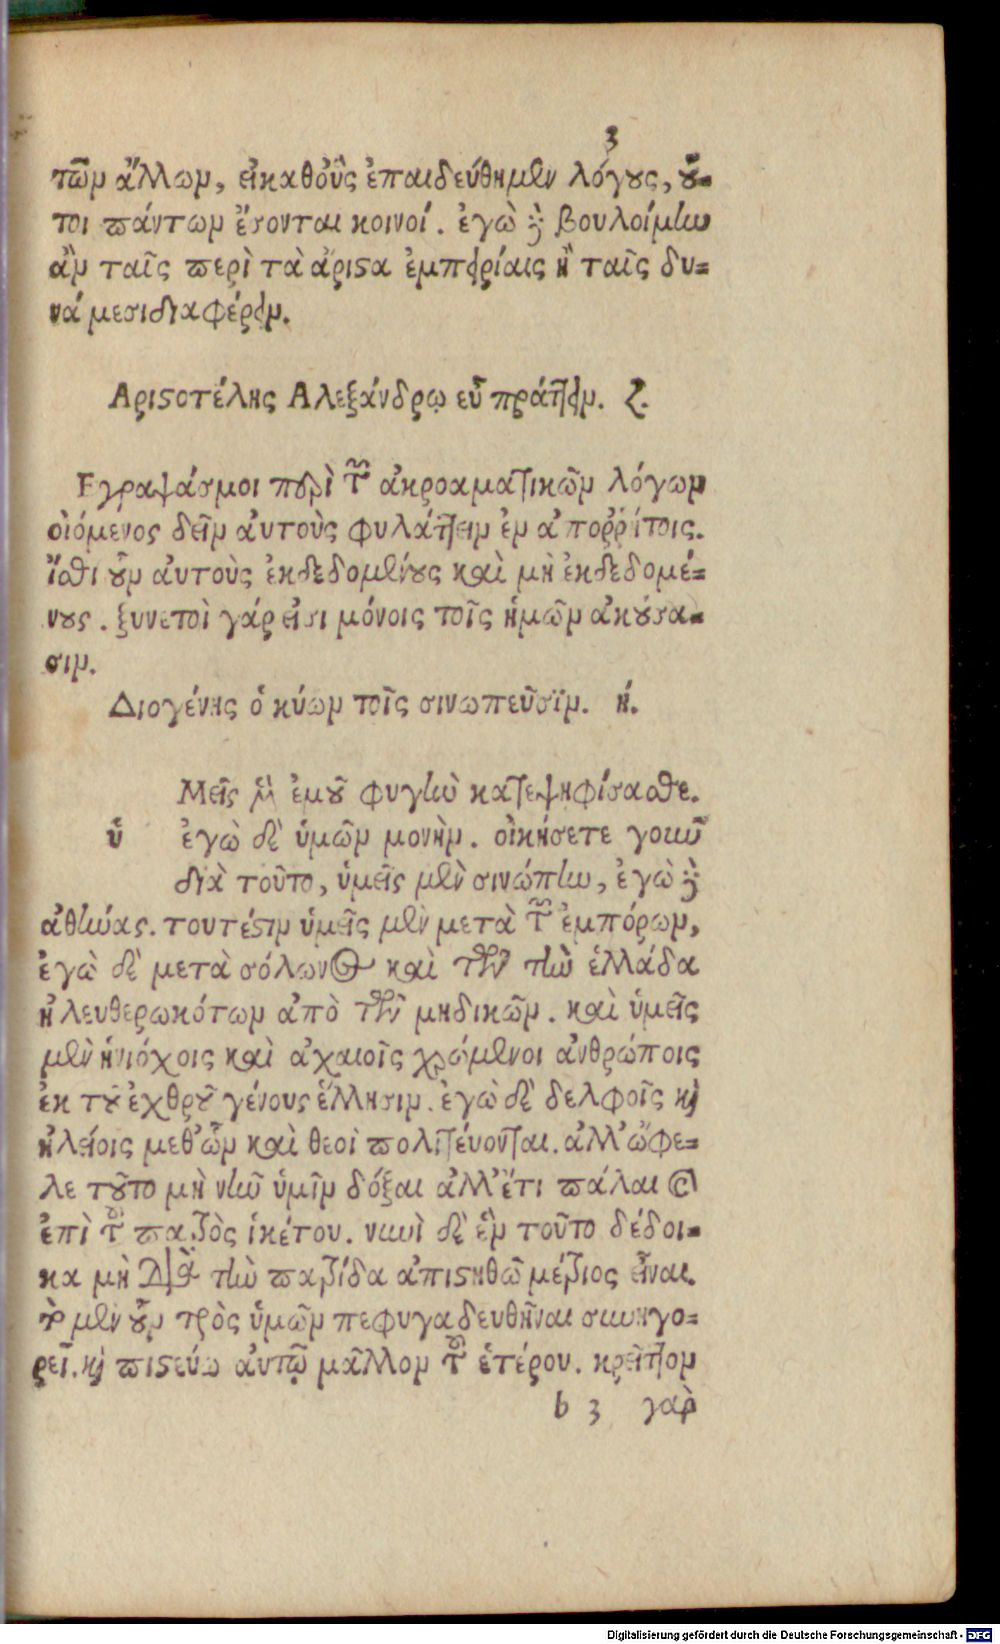 3
τῶν ἄλλων, εἰ καθ' οὓς ἐπαιδεύθημεν λόγους, οὗ-
τοι πάντων ἔσονται κοινοί. ἐγὼ δὲ βουλοίμην
ἂν ταῖς περὶ τὰ ἄριστα ἐμπειρίαις ἢ ταῖς δυ-
νάμεσι διαφέρειν.
Αριστοτέλης Αλεξάνδρῳ εὖ πράττειν. ζ.
Εγραψάς μοι περὶ τῶν ἀκροαματικῶν λόγων
οἰόμενος δεῖν αὐτοὺς φυλάττειν ἐν ἀποῤῥήτοις.
ἴσθι οὖν αὐτοὺς ἐκδεδομένους καὶ μὴ ἐκδεδομέ-
νους. ξυνετοὶ γάρ εἰσι μόνοις τοῖς ἡμῶν ἀκούσα-
σιν.
Διογένης ὁ κύων τοῖς σινωπεῦσιν. ή.
Μεῖς μὲν ἐμοῦ φυγὴν κατεψηφίσασθε.
ὑ ἐγὼ δὲ ὑμῶν μονὴν. οἰκήσετε γοιωῦ
διὰ τοῦτο, ὑμεῖς μὲν σινώπην, ἐγὼ δὲ
ἀθήνας. τουτέστιν ὑμεῖς μὲν μετὰ τῶν ἐμπόρων,
ἐγὼ δὲ μετὰ σόλωνος καὶ τῶν τὴν ἑλλάδα
ἠλευθερωκότων ἀπὸ τῶν μηδικῶν. καὶ ὑμεῖς
μὲν ἡνιόχοις καὶ ἀχαιοῖς χρώμενοι ἀνθρώποις
ἐκ τοῦ ἐχθροῦ γένους ἕλλησιν. ἐγὼ δὲ δελφοῖς καὶ
ἠλείοις μεθ' ὧν καὶ θεοὶ πολιτεύονται. ἀλλ' ὤφε-
λε τοῦτο μὴ νῦν ὑμῖν δόξαι ἀλλ' ἔτι πάλαι καὶ
ἐπὶ τοῦ πατρὸς ἱκέτου. νυνὶ δὲ ἓν τοῦτο δέδοι-
κα μὴ διὰ τὴν πατρίδα ἀπιστηθῶ μέτριος εἶναι.
τὸ μὲν οὖν πρὸς ὑμῶν πεφυγαδευθῆναι συνηγο-
ρεῖ. καὶ πιστεύω αὐτῷ μᾶλλον τοῦ ἑτέρου. κρεῖττον
b 3 γὰρ
Digitalisierung gefördert durch die Deutsche Forschungsgemeinschaft - DFG